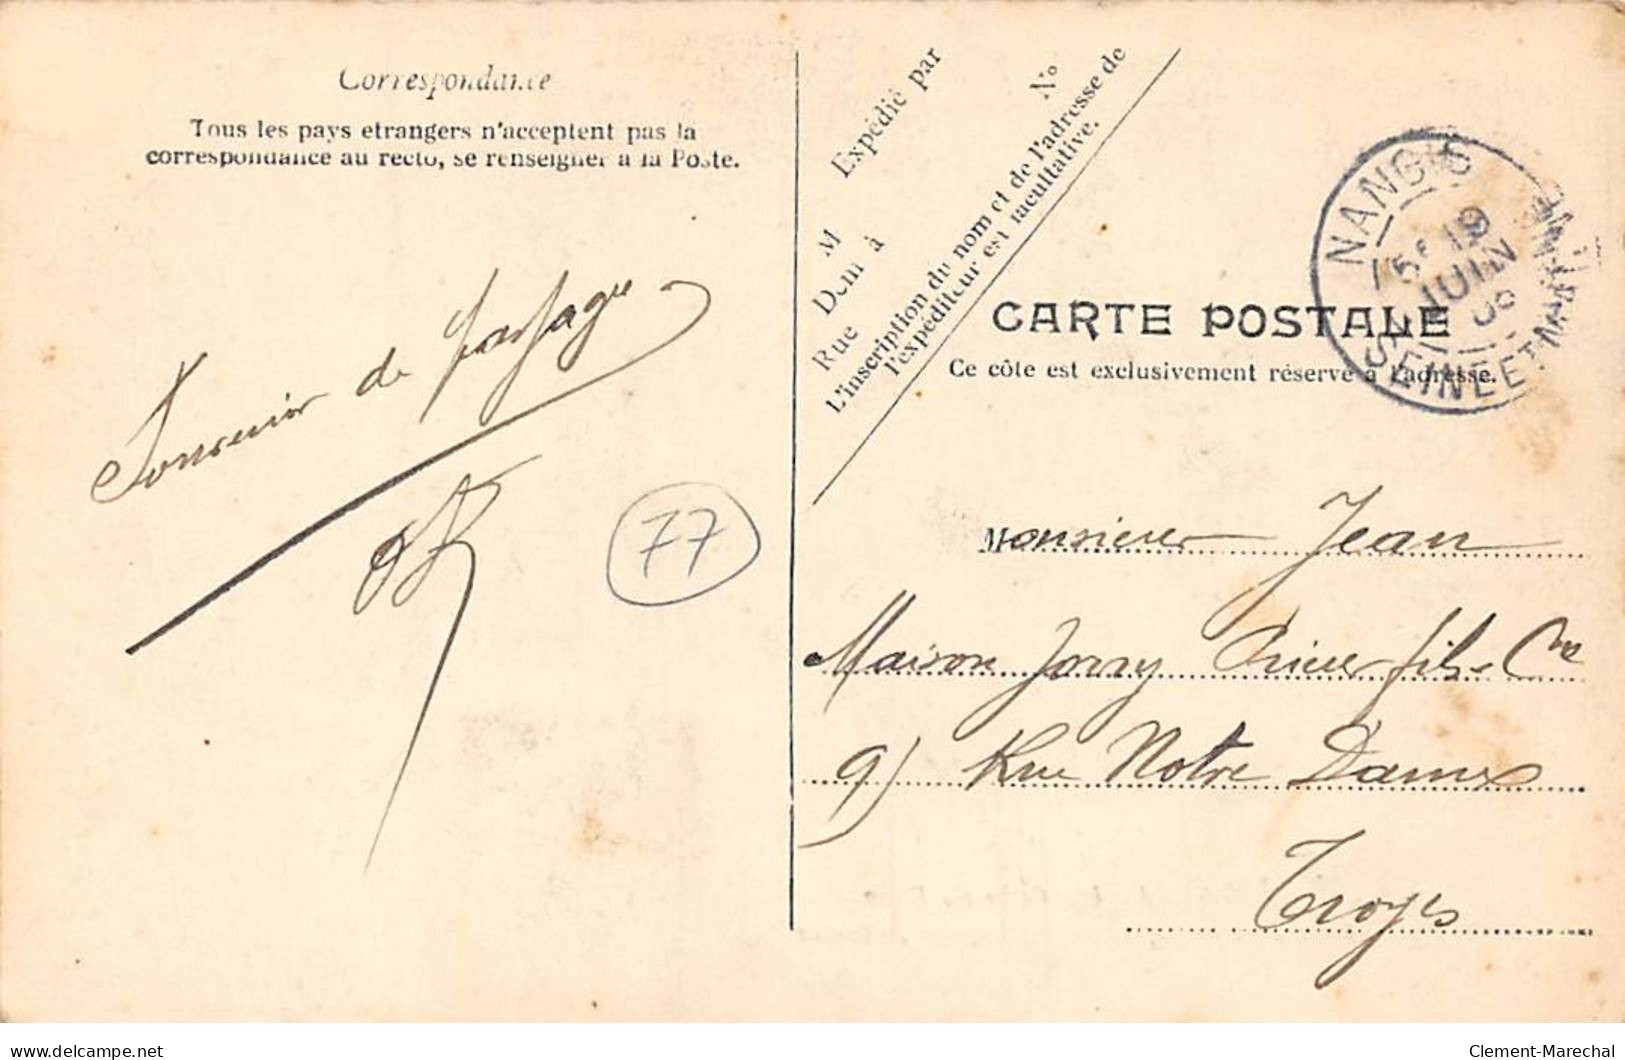 Correspondance
Tous les pays etrangers n'acceptent pas la
correspondance au recto, se renseigner a la Poste.
Souvenir de passage
77
Expédié par
M
Dem à
Rue
No
L'inscription du nom et de l'adresse de
l'expéditeur est facultative.
NANGIS
19
JUIN
SEINE ET MARNE
CARTE POSTALE
Ce côte est exclusivement réservé a l'adresse.
Monsieur Jean
Maison Jorry Prieur fils
9) Rue Notre Dame
Troyes
delcampe.net
Clement-Marechal